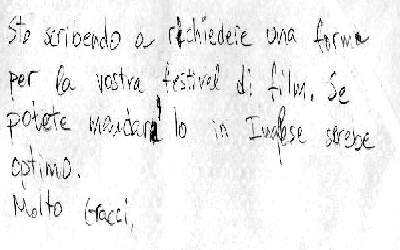 Sto scribendo a richiedere una forma
per la vostra festival di film. Se
potete mandar lo in Inglese serebe
optimo.
Molto Gracci,